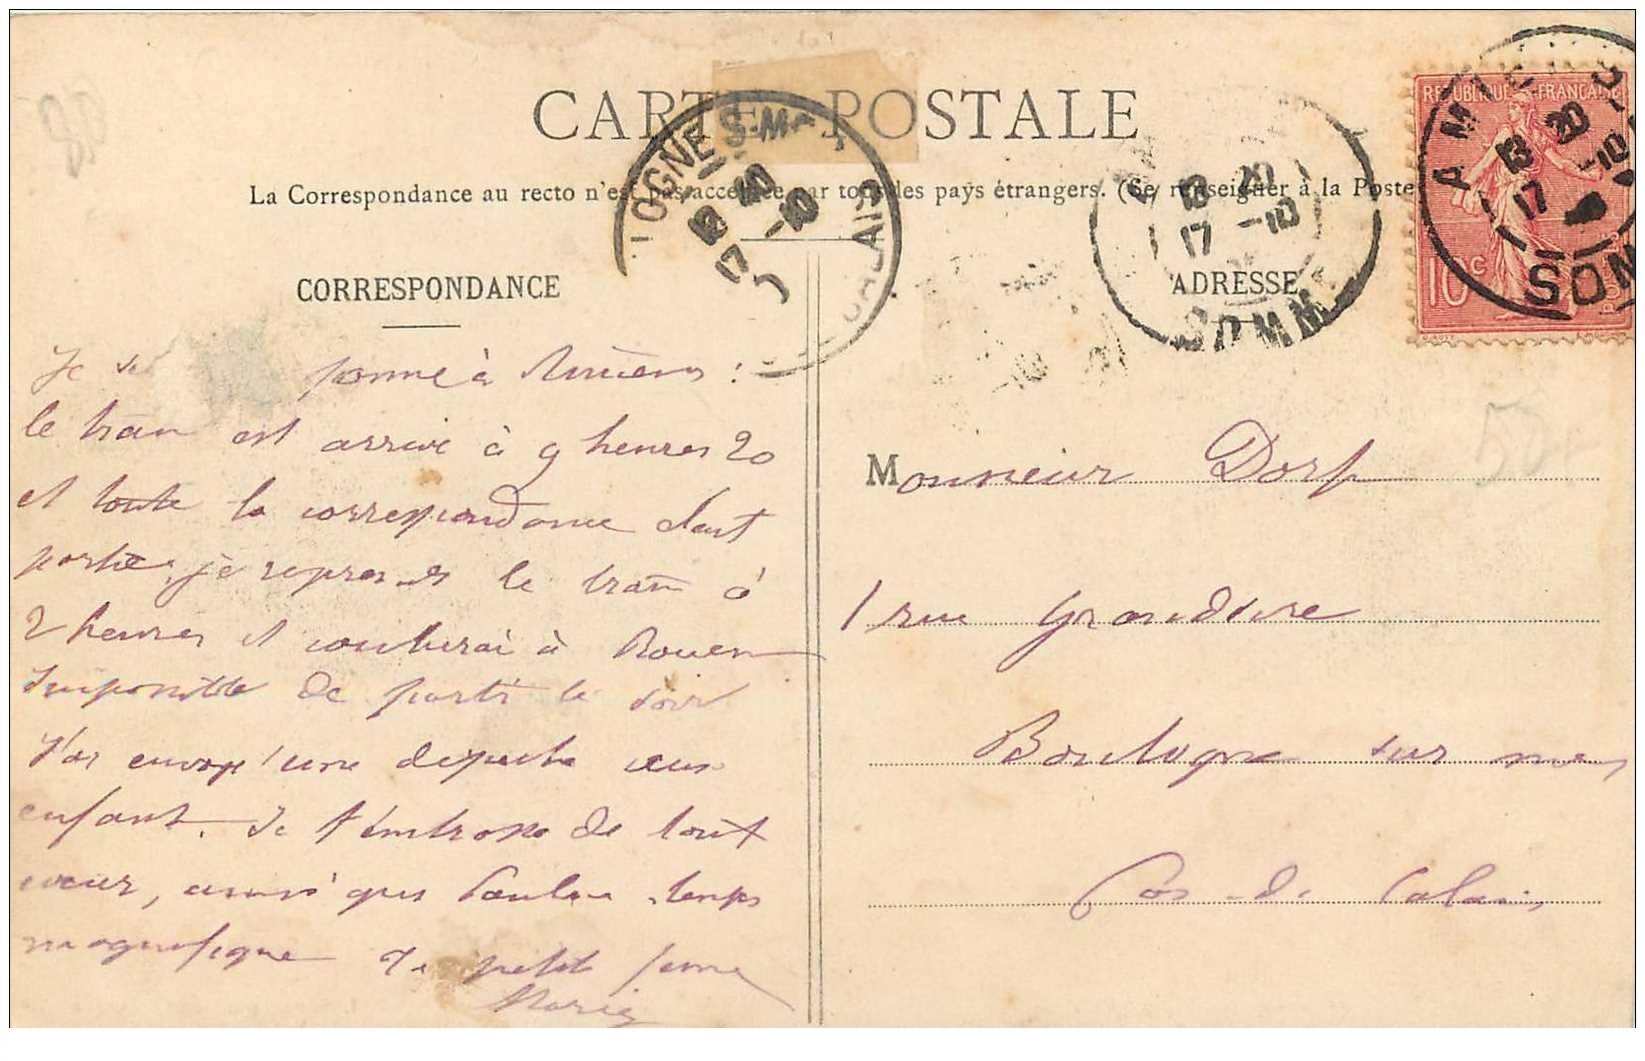 CARTE POSTALE
La Correspondance au recto n'est pas acceptée par tous les pays étrangers. (Se renseigner à la Poste
CORRESPONDANCE
ADRESSE
REPUBLIQUE FRANÇAISE
10 c
AMIENS
13 20
17 -10
SOMME
18 20
17 -10
SOMME
LOGNE S-MER
17 -10
CALAIS
Je
le train est arrivé à 9 heures 20
et toute la correspondance etant
partie, je reprends le train à
2 heures et coucherai à Rouen
Impossible de parti le soir
J'ai envoyé une depeche aux
enfant. Je t'embrasse de tout
coeur, ainsi que Paulene temps
magnifique Ta petite femme
Maria
Monsieur Dorf
1 rue Grandsire
Boulogne sur mer
Pas de Calais
80